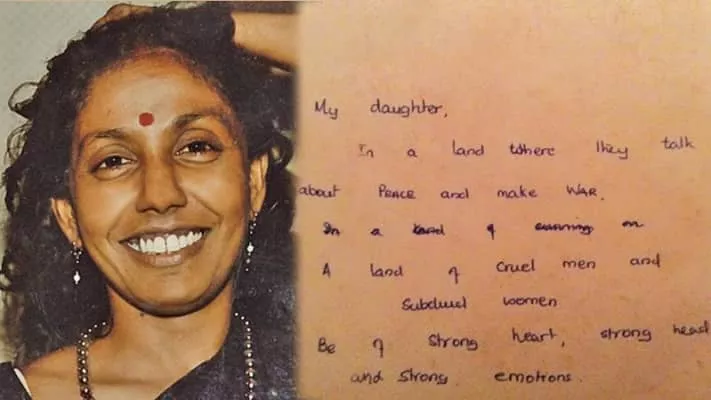 My daughter,
In a land where they talk
about PEACE and make WAR.
In a land of cunning m
A land of cruel men and
subdued women
Be of strong heart, strong head
and strong emotions.